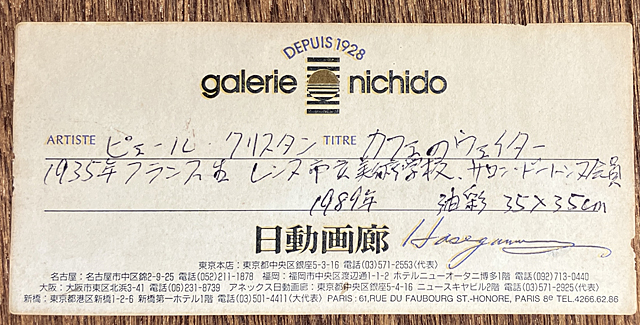 DEPUIS 1928
galerie nichido
ARTISTE ピエール・クリスタン TITRE カフェのウェイター
1935年フランス生 レンヌ市立美術学校、サロン・ドートンヌ会員
1989年 油彩 35×35cm
日動画廊 Hasegawa
東京本店：東京都中央区銀座5-3-16 電話(03)571-2553(代表)
名古屋：名古屋市中区錦2-9-25 電話(052)211-1878 福岡：福岡市中央区渡辺通1-1-2 ホテルニューオータニ博多1階 電話(092)713-0440
大阪：大阪市東区北浜3-41 電話(06)231-8739 アネックス日動画廊：東京都中央区銀座5-4-16 ニュースキヤビル2階 電話(03)571-2925(代表)
新橋：東京都港区新橋1-2-6 新橋第一ホテル1階 電話(03)501-4411(大代表) PARIS：61,RUE DU FAUBOURG ST.-HONORE, PARIS 8e TEL.4266.62.86